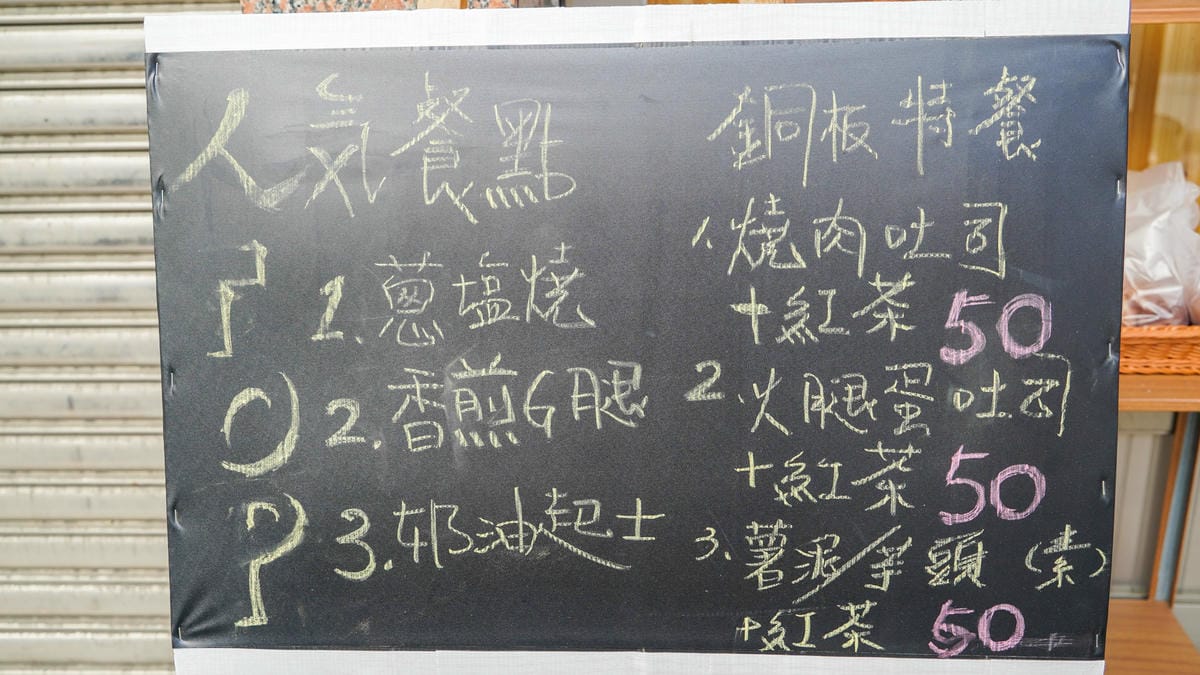 人氣餐點
TOP
1. 蔥塩燒
2. 香煎G腿
3. 奶油起士
銅板特餐
1. 燒肉吐司
+紅茶 50
2. 火腿蛋吐司
+紅茶 50
3. 薯泥/芋頭(素)
+紅茶 50